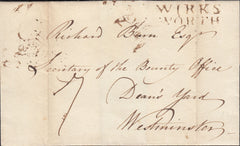 WIRKS
WORTH
Richard Burn Esqr
Secretary of the Bounty Office
Dean's Yard
7
Westminster